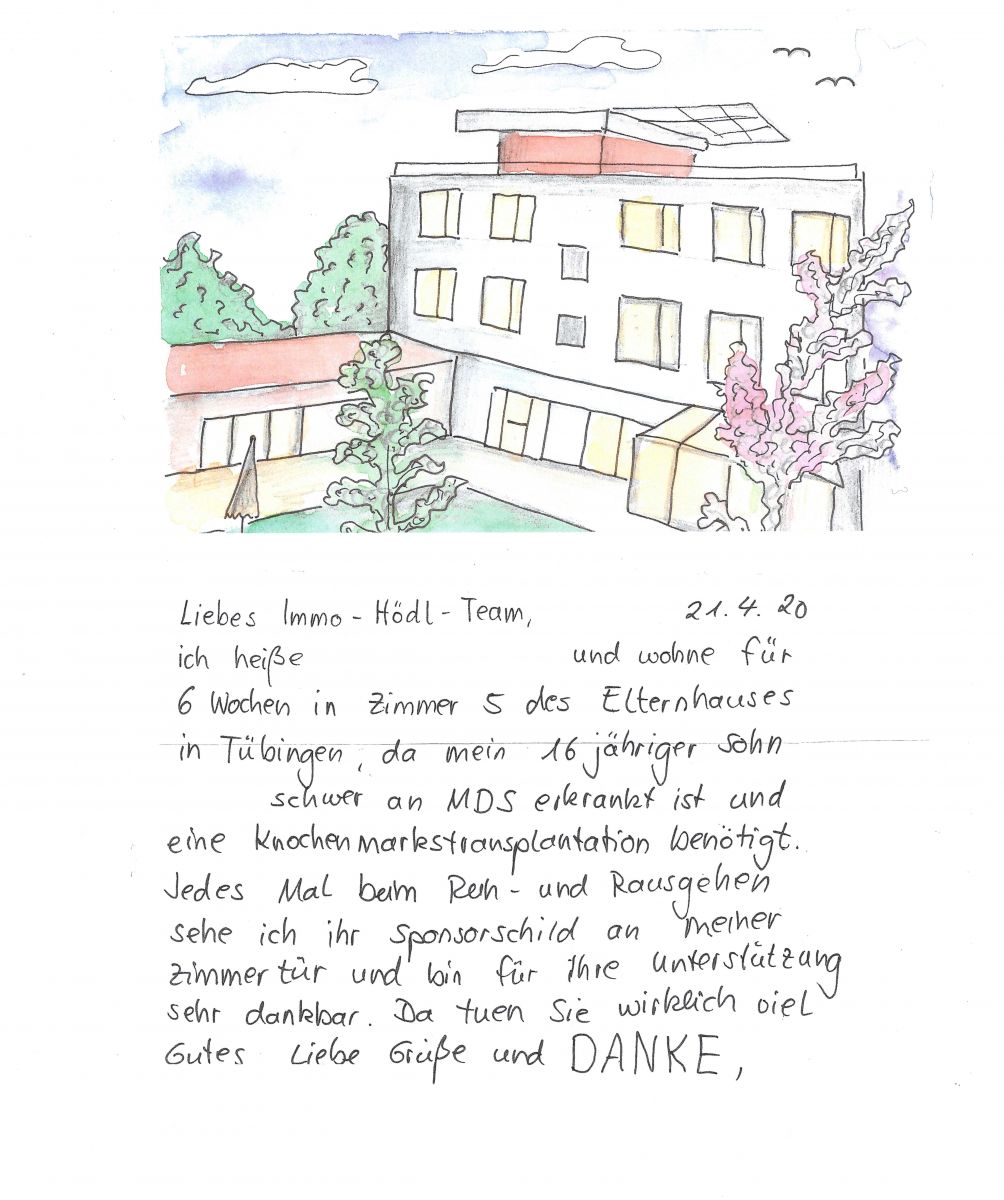 Liebes Immo-Hödl-Team, 21.4.20
ich heiße und wohne für
6 Wochen in Zimmer 5 des Elternhauses
in Tübingen, da mein 16 jähriger Sohn
schwer an MDS erkrankt ist und
eine Knochenmarkstransplantation benötigt.
Jedes Mal beim Rein- und Rausgehen
sehe ich ihr Sponsorschild an meiner
Zimmertür und bin für Ihre Unterstützung
sehr dankbar. Da tuen Sie wirklich viel
Gutes Liebe Grüße und DANKE,